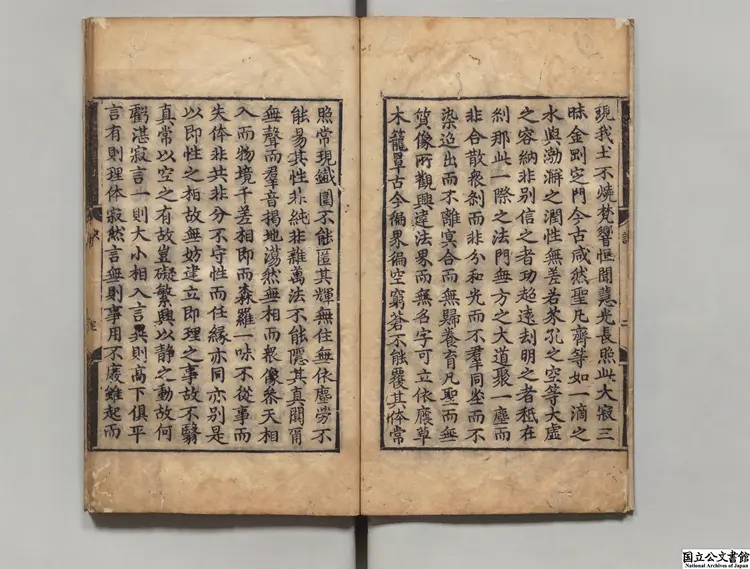 說我土不燒梵響恒聞慧光長照此大寂三
昧金剛定門今古咸然聖凡齊等如一滴之
水與渤澥之潤性無差若芥孔之空等大虛
之容納非別信之者功超遠刼明之者秖在
刹那此一際之法門無方之大道聚一塵而
非合散衆刹而非分和光而不羣同塵而不
染迢出而不離冥合而無歸養育凡聖而無
質像可觀興建法界而無名字可立依廕草
木籠罩古今徧界徧空穹蒼不能覆其体常
照常現鐵圍不能匿其輝無住無依塵勞不
能易其性非純非雜萬法不能隱其真闃爾
無聲而羣音揭地蕩然無相而衆像叅天相
入而物境千差相即而森羅一味不從事而
失体非共非分不守性而任緣亦同亦別是
以即性之相故無妨建立即理之事故不翳
真常以空之有故豈礙繁興以静之動故何
虧湛寂言一則大小相入言異則高下俱平
言有則理体寂然言無則事用不廢雖起而
国立公文書館
National Archives of Japan